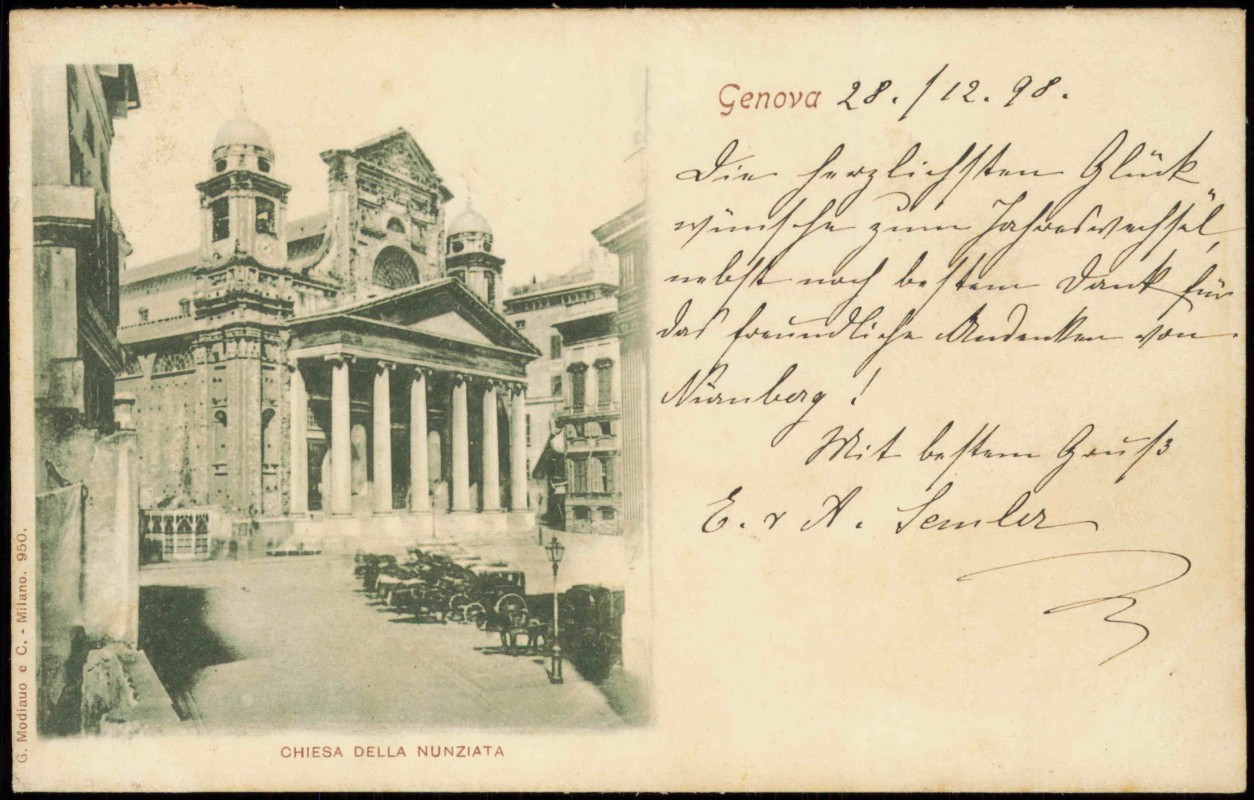 Genova 28./12.98.
Die herzlichsten Glück
wünsche zum Jahreswechsel,
nebst noch bestem Dank für
das freundliche Andenken von
Nürnberg!
Mit bestem Gruß
E. & A. Semler
CHIESA DELLA NUNZIATA
G. Modiano e C. - Milano. 950.